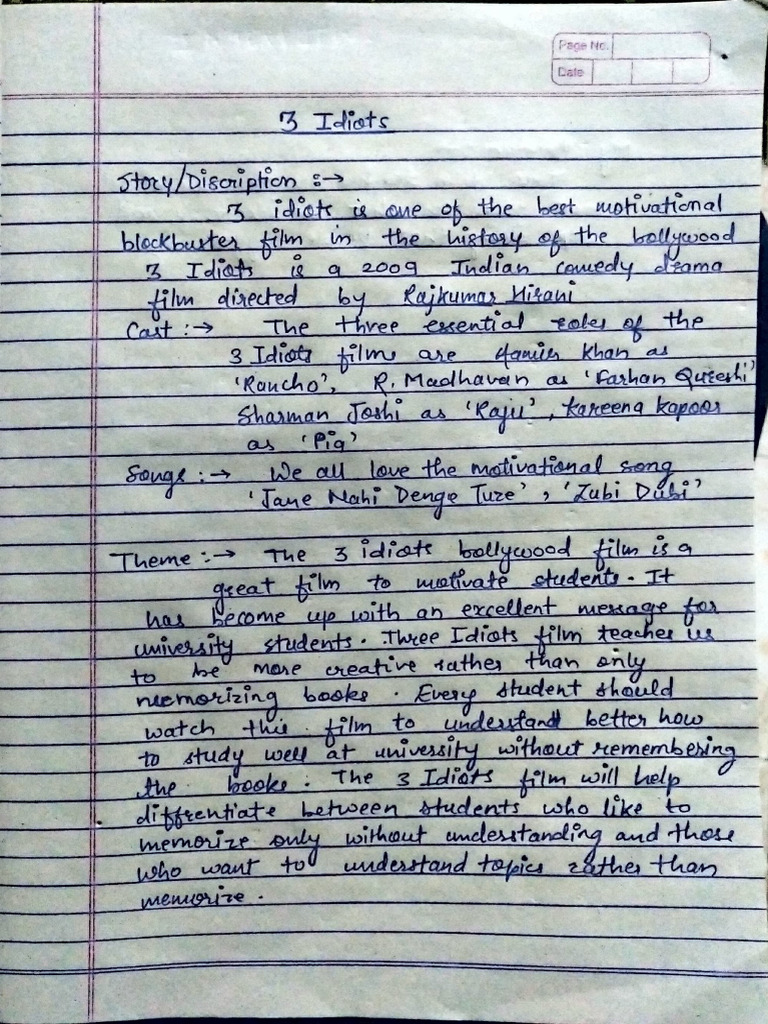 Page No.
Date
3 Idiots
Story/Discription :→
3 idiots is one of the best motivational
blockbuster film in the history of the bollywood
3 Idiots is a 2009 Indian comedy drama
film directed by Rajkumar Hirani
Cast :→ The three essential roles of the
3 Idiots films are Aamir Khan as
'Rancho', R. Madhavan as 'Farhan Qureshi'
Sharman Joshi as 'Raju', kareena kapoor
as 'Pia'
Songs :→ We all love the motivational song
'Jane Nahi Denge Tuze', 'Zubi Dubi'
Theme :→ The 3 idiots bollywood film is a
great film to motivate students. It
has become up with an excellent message for
university students. Three Idiots film teaches us
to be more creative rather than only
memorizing books. Every student should
watch this film to understand better how
to study well at university without remembering
the books. The 3 Idiots film will help
diffrentiate between students who like to
memorize only without understanding and those
who want to understand topics rather than
memorize.